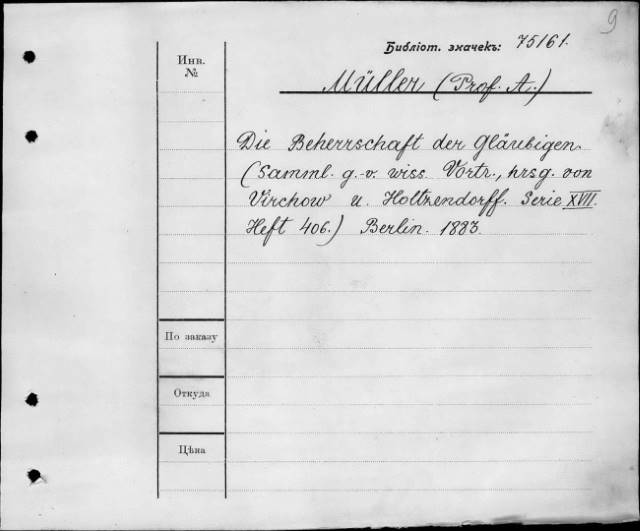 9
Библіот. значекъ: 75161.
Инв.
№
Müller (Prof. A.)
Die Beherrschaft der Gläubigen
(Samml. g.-v. wiss. Vortr., hrsg. von
Virchow u. Holtzendorff. Serie XVII.
Heft 406.) Berlin. 1883.
По заказу
Откуда
Цѣна